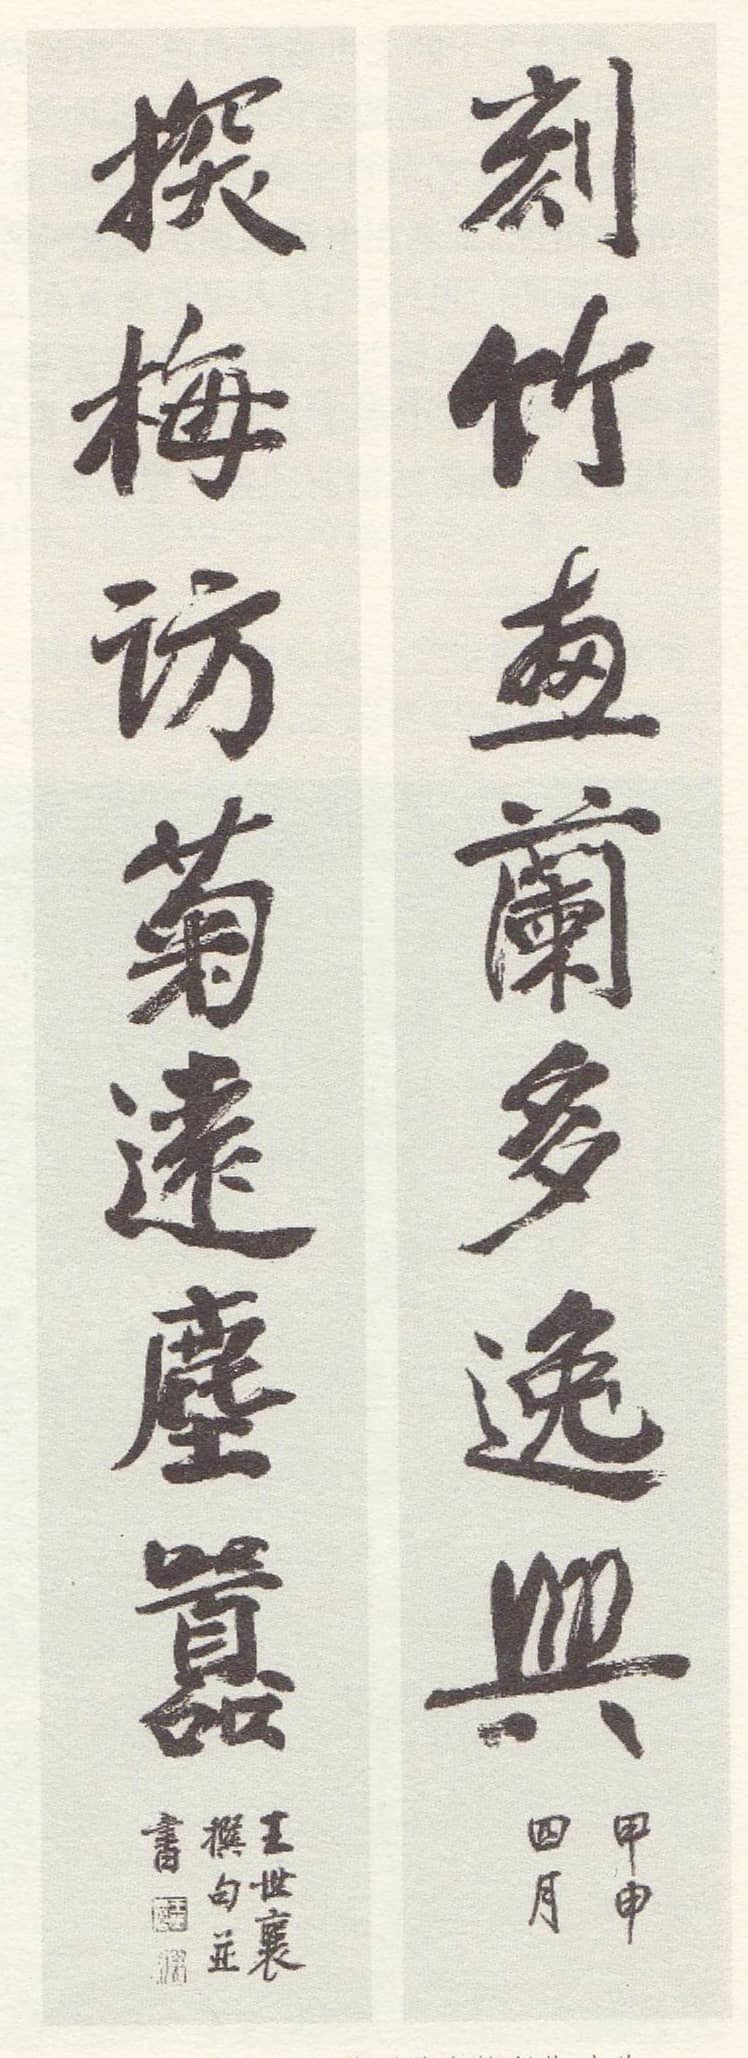 刻竹畫蘭多逸興
甲申
四月
探梅訪菊遠塵囂
王世襄
撰句並
書